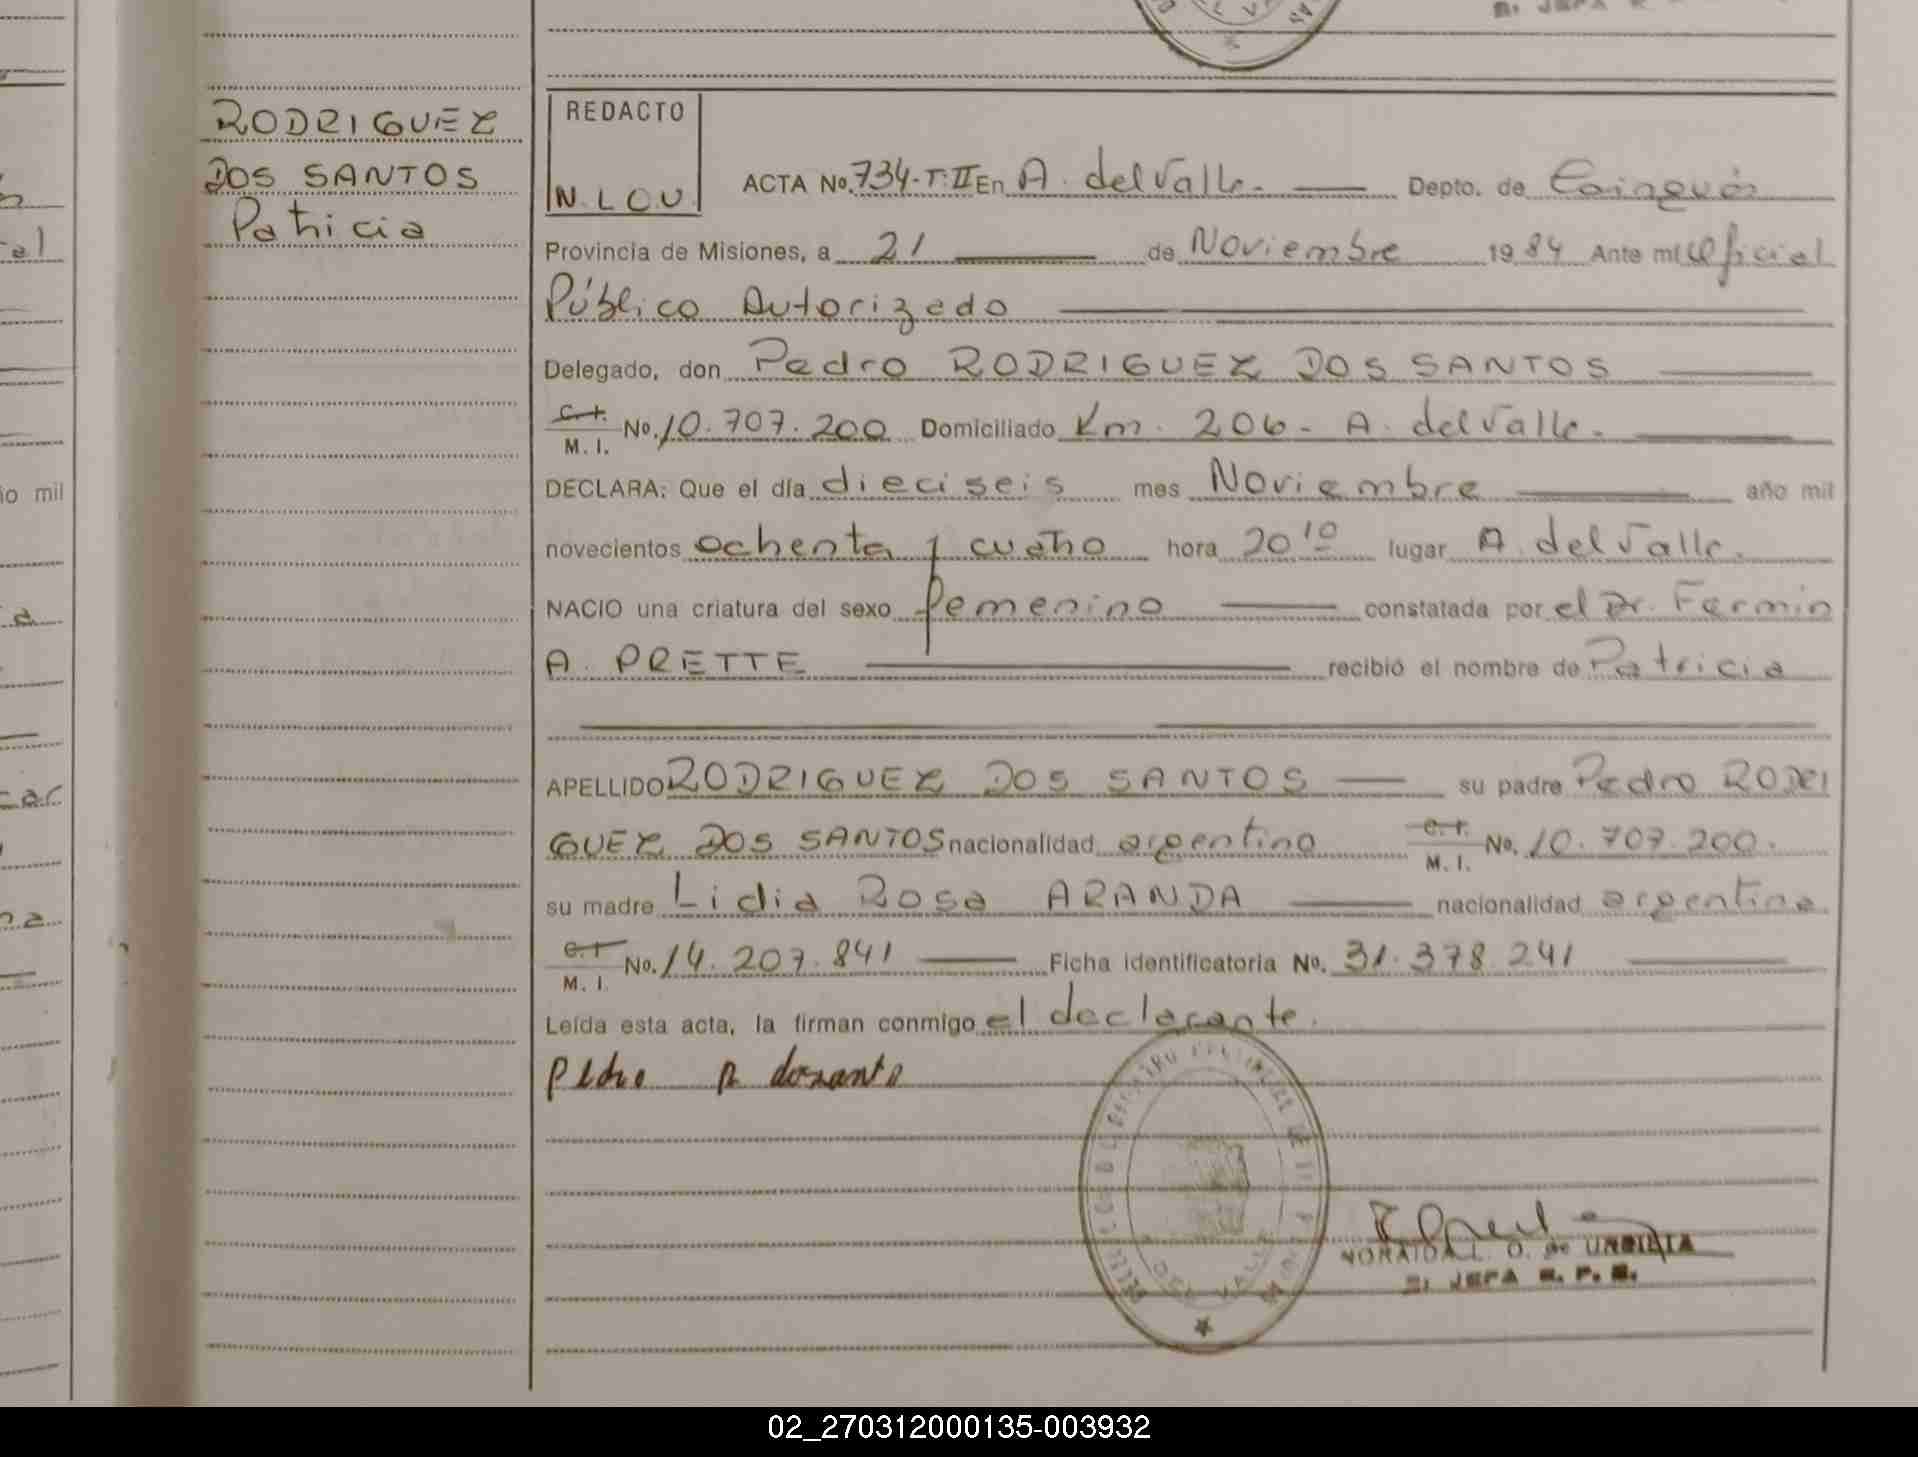 RODRIGUEZ
DOS SANTOS
Patricia
REDACTO
N. L O U.
ACTA No. 734-T:II En A. del Valle. Depto. de Cainguás
Provincia de Misiones, a 21 de Noviembre 1984 Ante mi Oficial
Público Autorizado
Delegado, don Pedro RODRIGUEZ DOS SANTOS
C.I.
M. I. No. 10.707.200 Domiciliado Km. 206- A. del Valle.
DECLARA: Que el día dieciseis mes Noviembre año mil
novecientos ochenta y cuatro hora 20 10 lugar A. del Valle.
NACIO una criatura del sexo femenino constatada por el Dr. Fermin
A. PRETTE recibió el nombre de Patricia
APELLIDO RODRIGUEZ DOS SANTOS su padre Pedro RODRI
GUEZ DOS SANTOS nacionalidad argentino C.I. M. I. No. 10.707.200.
su madre Lidia Rosa ARANDA nacionalidad argentina
C.I. M. I. No. 14.207.841 Ficha identificatoria No. 31.378.241
Leída esta acta, la firman conmigo el declarante.
Pedro R dosanto
DEL VALLE
NORAIDA L. O. de URBIETA
JEFA R. P. S.
02_270312000135-003932